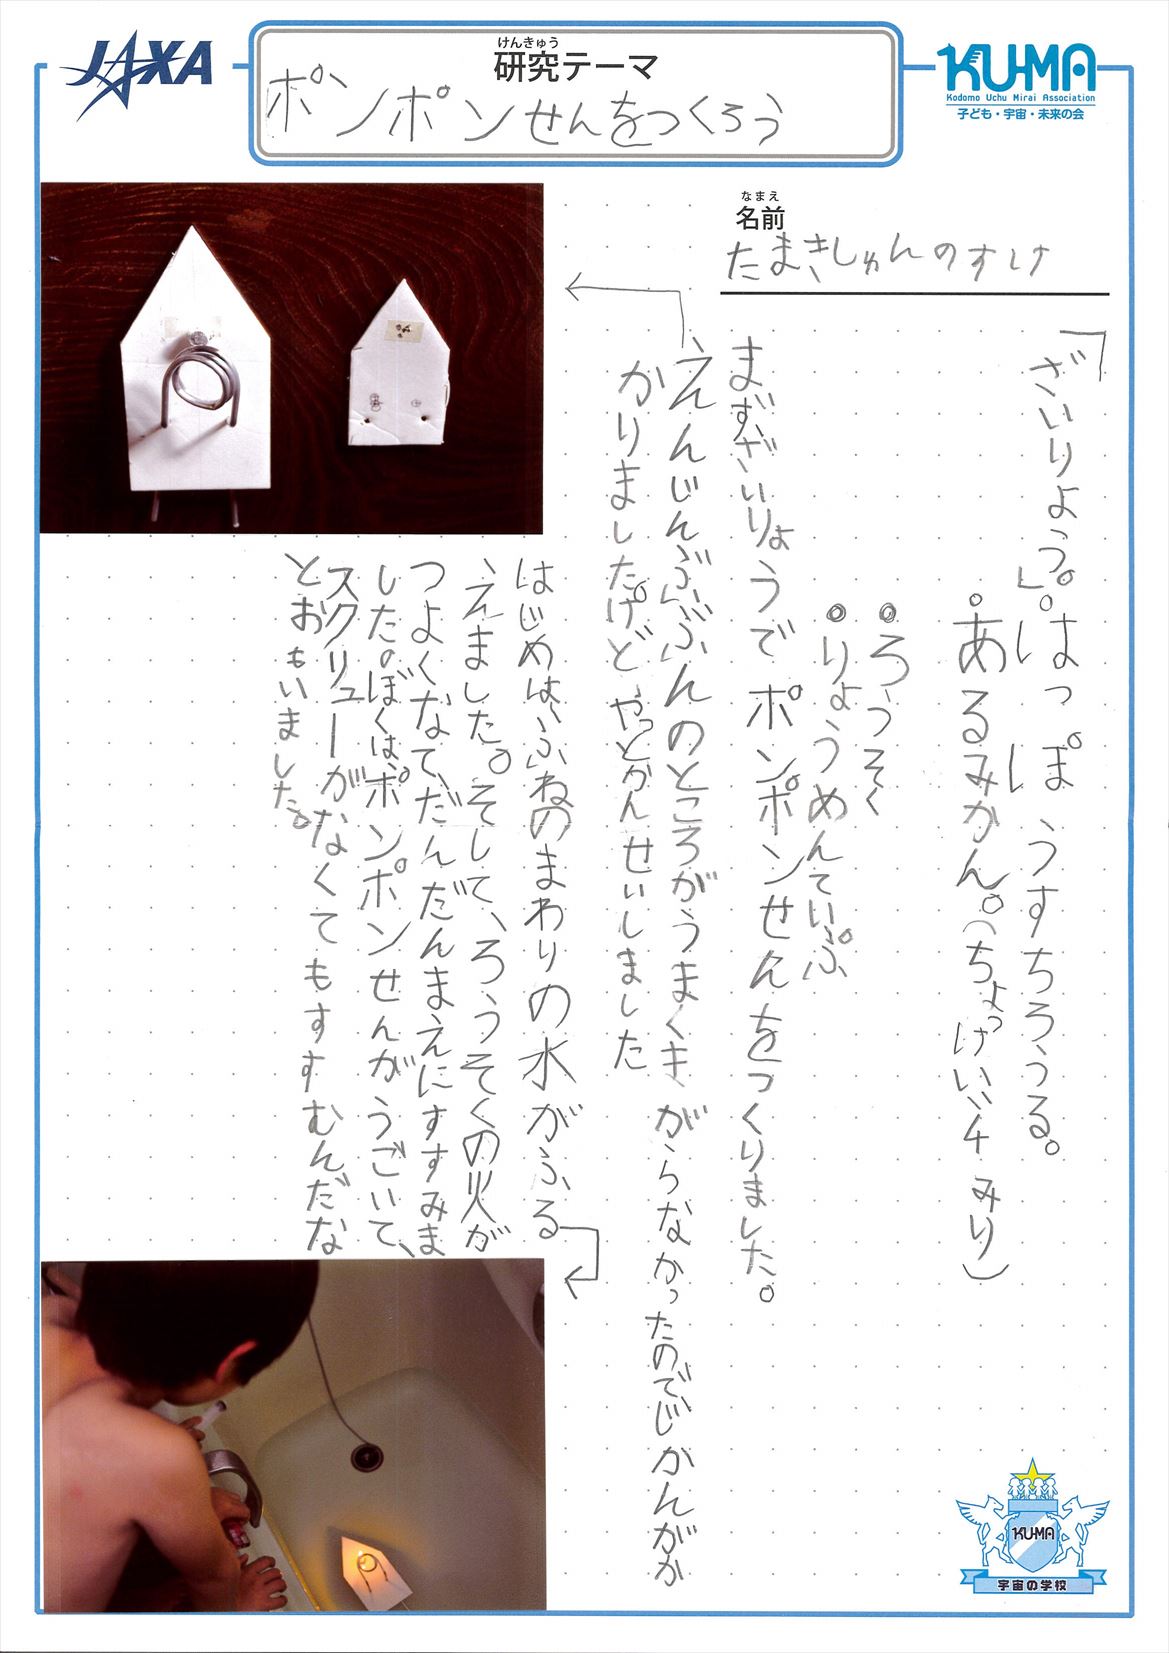 JAXA
けんきゅう
研究テーマ
ポンポンせんをつくろう
KU-MA
Kodomo Uchu Mirai Association
子ども・宇宙・未来の会
なまえ
名前
たまきしゅんのすけ
「ざいりょう。」。はっぽうすちろうる。
。あるみかん。(ちょっけい、4みり)
・ろうそく
・りょうめんていぷ
まずざいりょうでポンポンせんをつくりました。
えんじんぶぶんのところがうまくまがらなかったのでじかんがか
かりましたけど、やっとかんせいしました
はじめは、ふねのまわりの水がふる
えました。そして、ろうそくの火が
つよくなて、だんだんまえにすすみま
した。ぼくは、ポンポンせんがうごいて、
スクリューがなくてもすすむんだな
とおもいました。
KU-MA
宇宙の学校